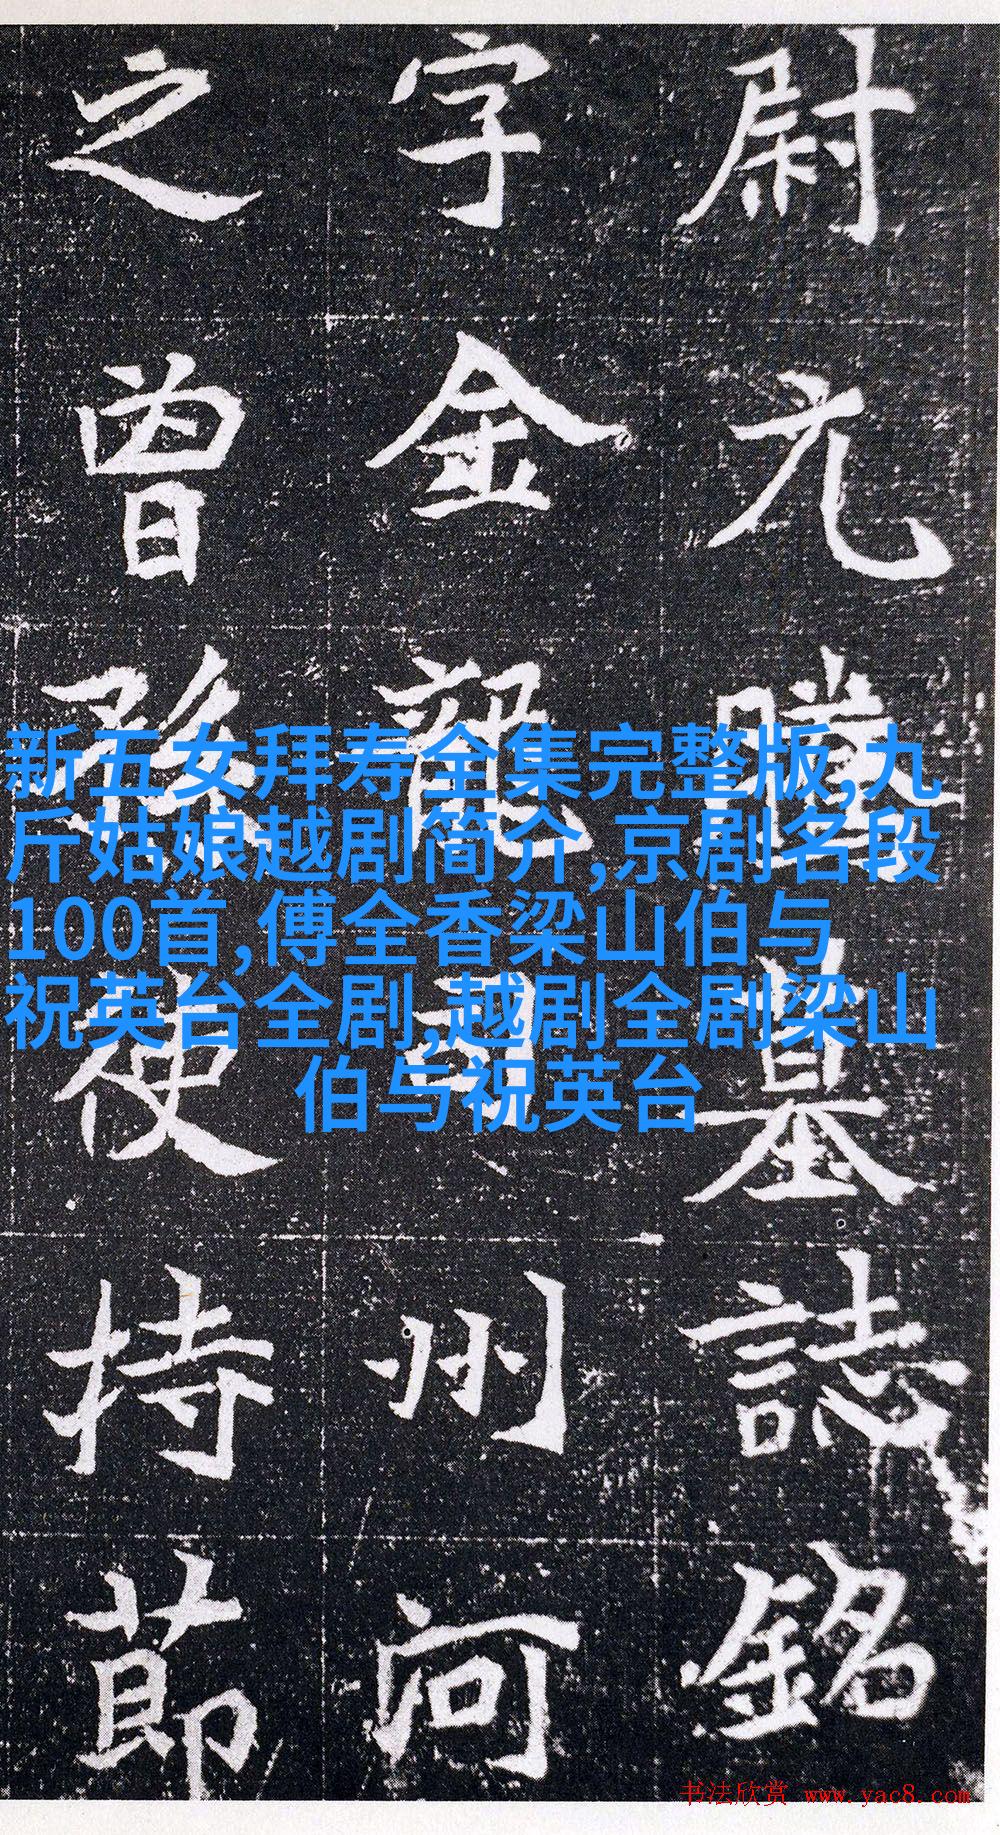 尉元騰墓誌銘
字金龍司州河
之曾孫使持節
新五女拜寿全集完整版,九
斤姑娘越剧简介,京剧名段
100首,傅全香梁山伯与
祝英台全剧,越剧全剧梁山
伯与祝英台
书法欣赏 www.yac8.com